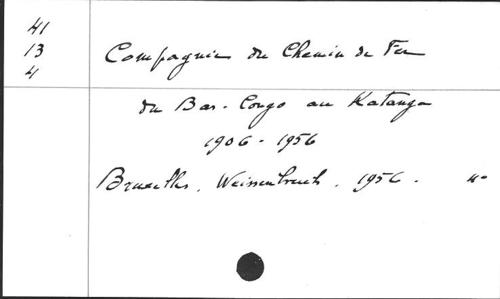 41
13
4
Compagnie du Chemin de Fer
du Bas-Congo au Katanga
1906-1956
Bruxelles, Weissenbruch, 1956. 4°